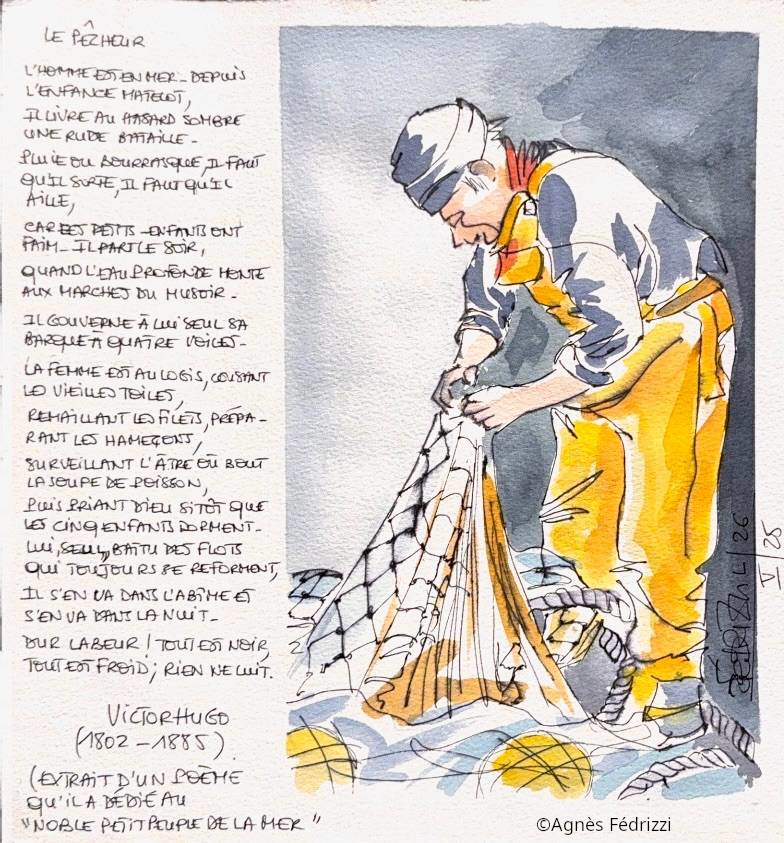 LE PÊCHEUR
L'HOMME EST EN MER - DEPUIS
L'ENFANCE MATELOT,
IL LIVRE AU HASARD SOMBRE
UNE RUDE BATAILLE -
PLUIE OU BOURRASQUE, IL FAUT
QU'IL SORTE, IL FAUT QU'IL
AILLE,
CAR LES PETITS - ENFANTS ONT
FAIM - IL PART LE SOIR,
QUAND L'EAU PROFONDE MONTE
AUX MARCHES DU MUSOIR -
IL GOUVERNE À LUI SEUL SA
BARQUE À QUATRE VOILES -
LA FEMME EST AU LOGIS, COUSANT
LES VIEILLES TOILES,
REMAILLANT LES FILETS, PRÉPA-
RANT LES HAMEÇONS,
SURVEILLANT L'ÂTRE OÙ BOUT
LA SOUPE DE POISSON,
PUIS PRIANT DIEU SITÔT QUE
LES CINQ ENFANTS DORMENT -
LUI, SEUL, BATTU DES FLOTS
QUI TOUJOURS SE REFORMENT,
IL S'EN VA DANS L'ABÎME ET
S'EN VA DANS LA NUIT -
DUR LABEUR ! TOUT EST NOIR,
TOUT EST FROID ; RIEN NE LUIT.
VICTOR HUGO
(1802 - 1885)
(EXTRAIT D'UN POÈME
QU'IL A DÉDIÉ AU
"NOBLE PETIT PEUPLE DE LA MER"
©Agnès Fédrizzi